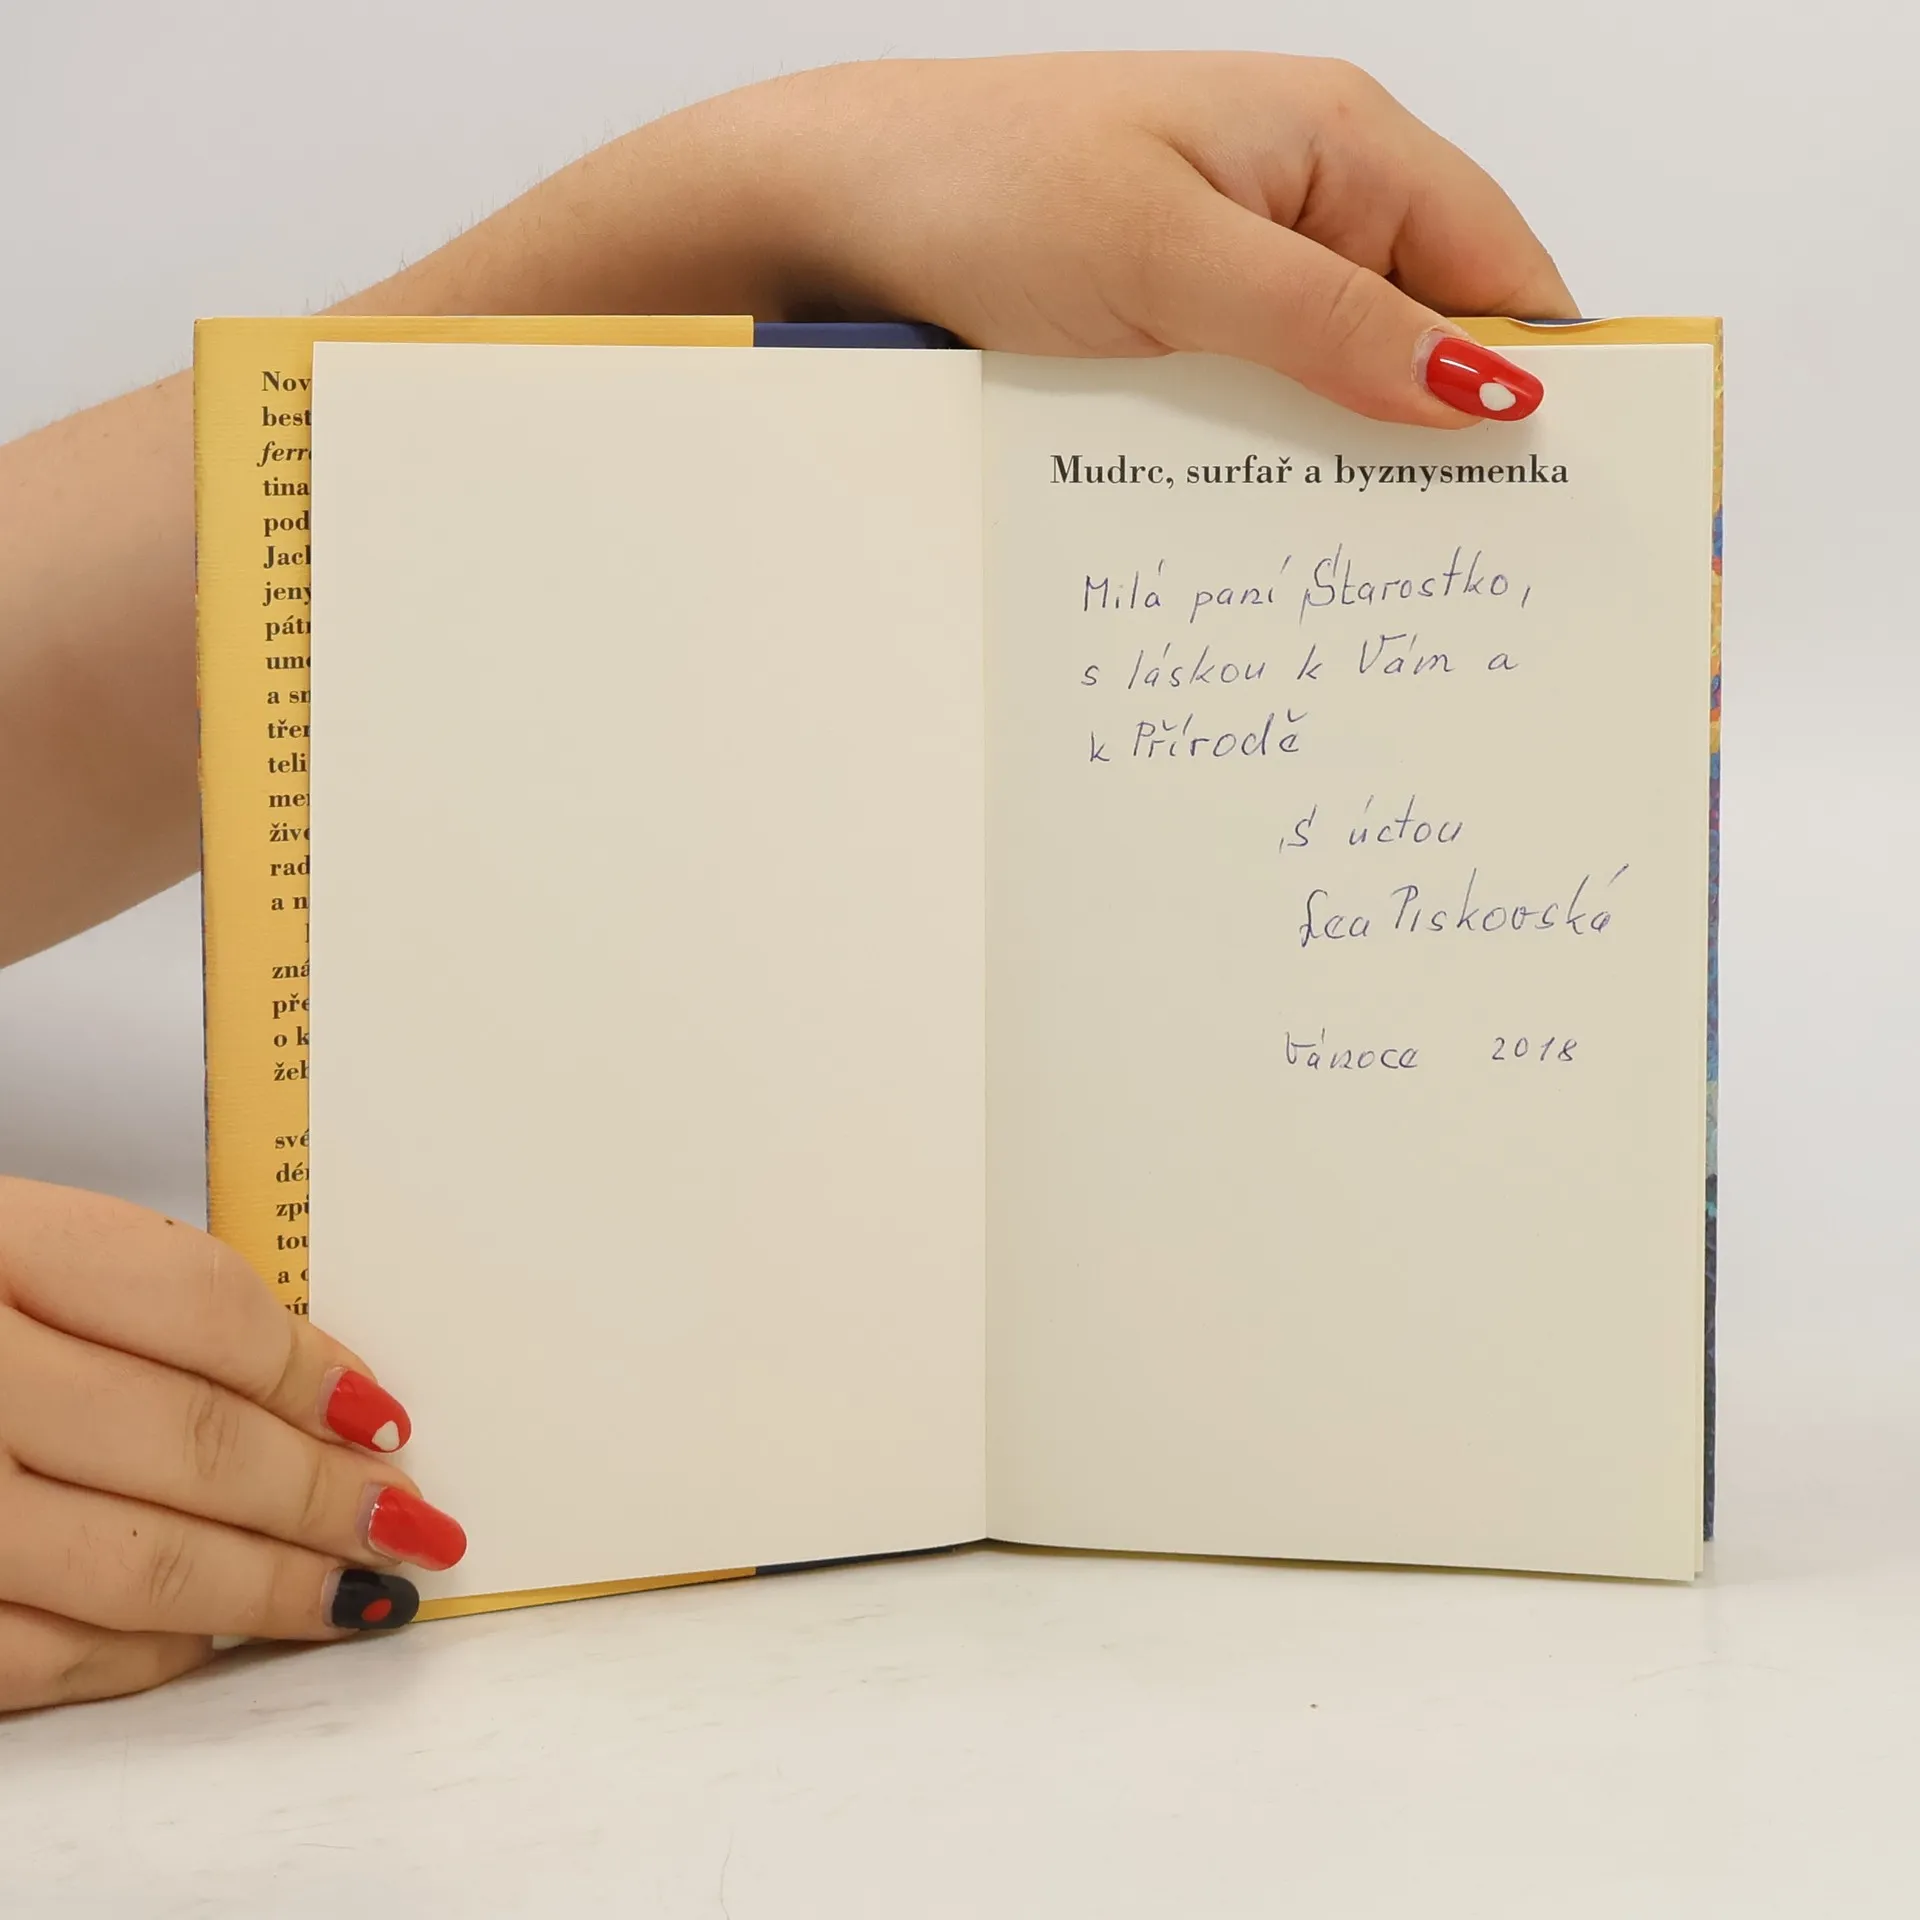 Nov
best
ferr
tina
pod
Jacl
jený
pátr
umě
a sn
třen
teli
men
živo
rad
a n
zná
pře
o k
žeb
své
dér
způ
tou
a o
Mudrc, surfař a byznysmenka
Milá paní Starostko,
s láskou k Vám a
k Přírodě
S úctou
Lea Piskovská
Vánoce 2018